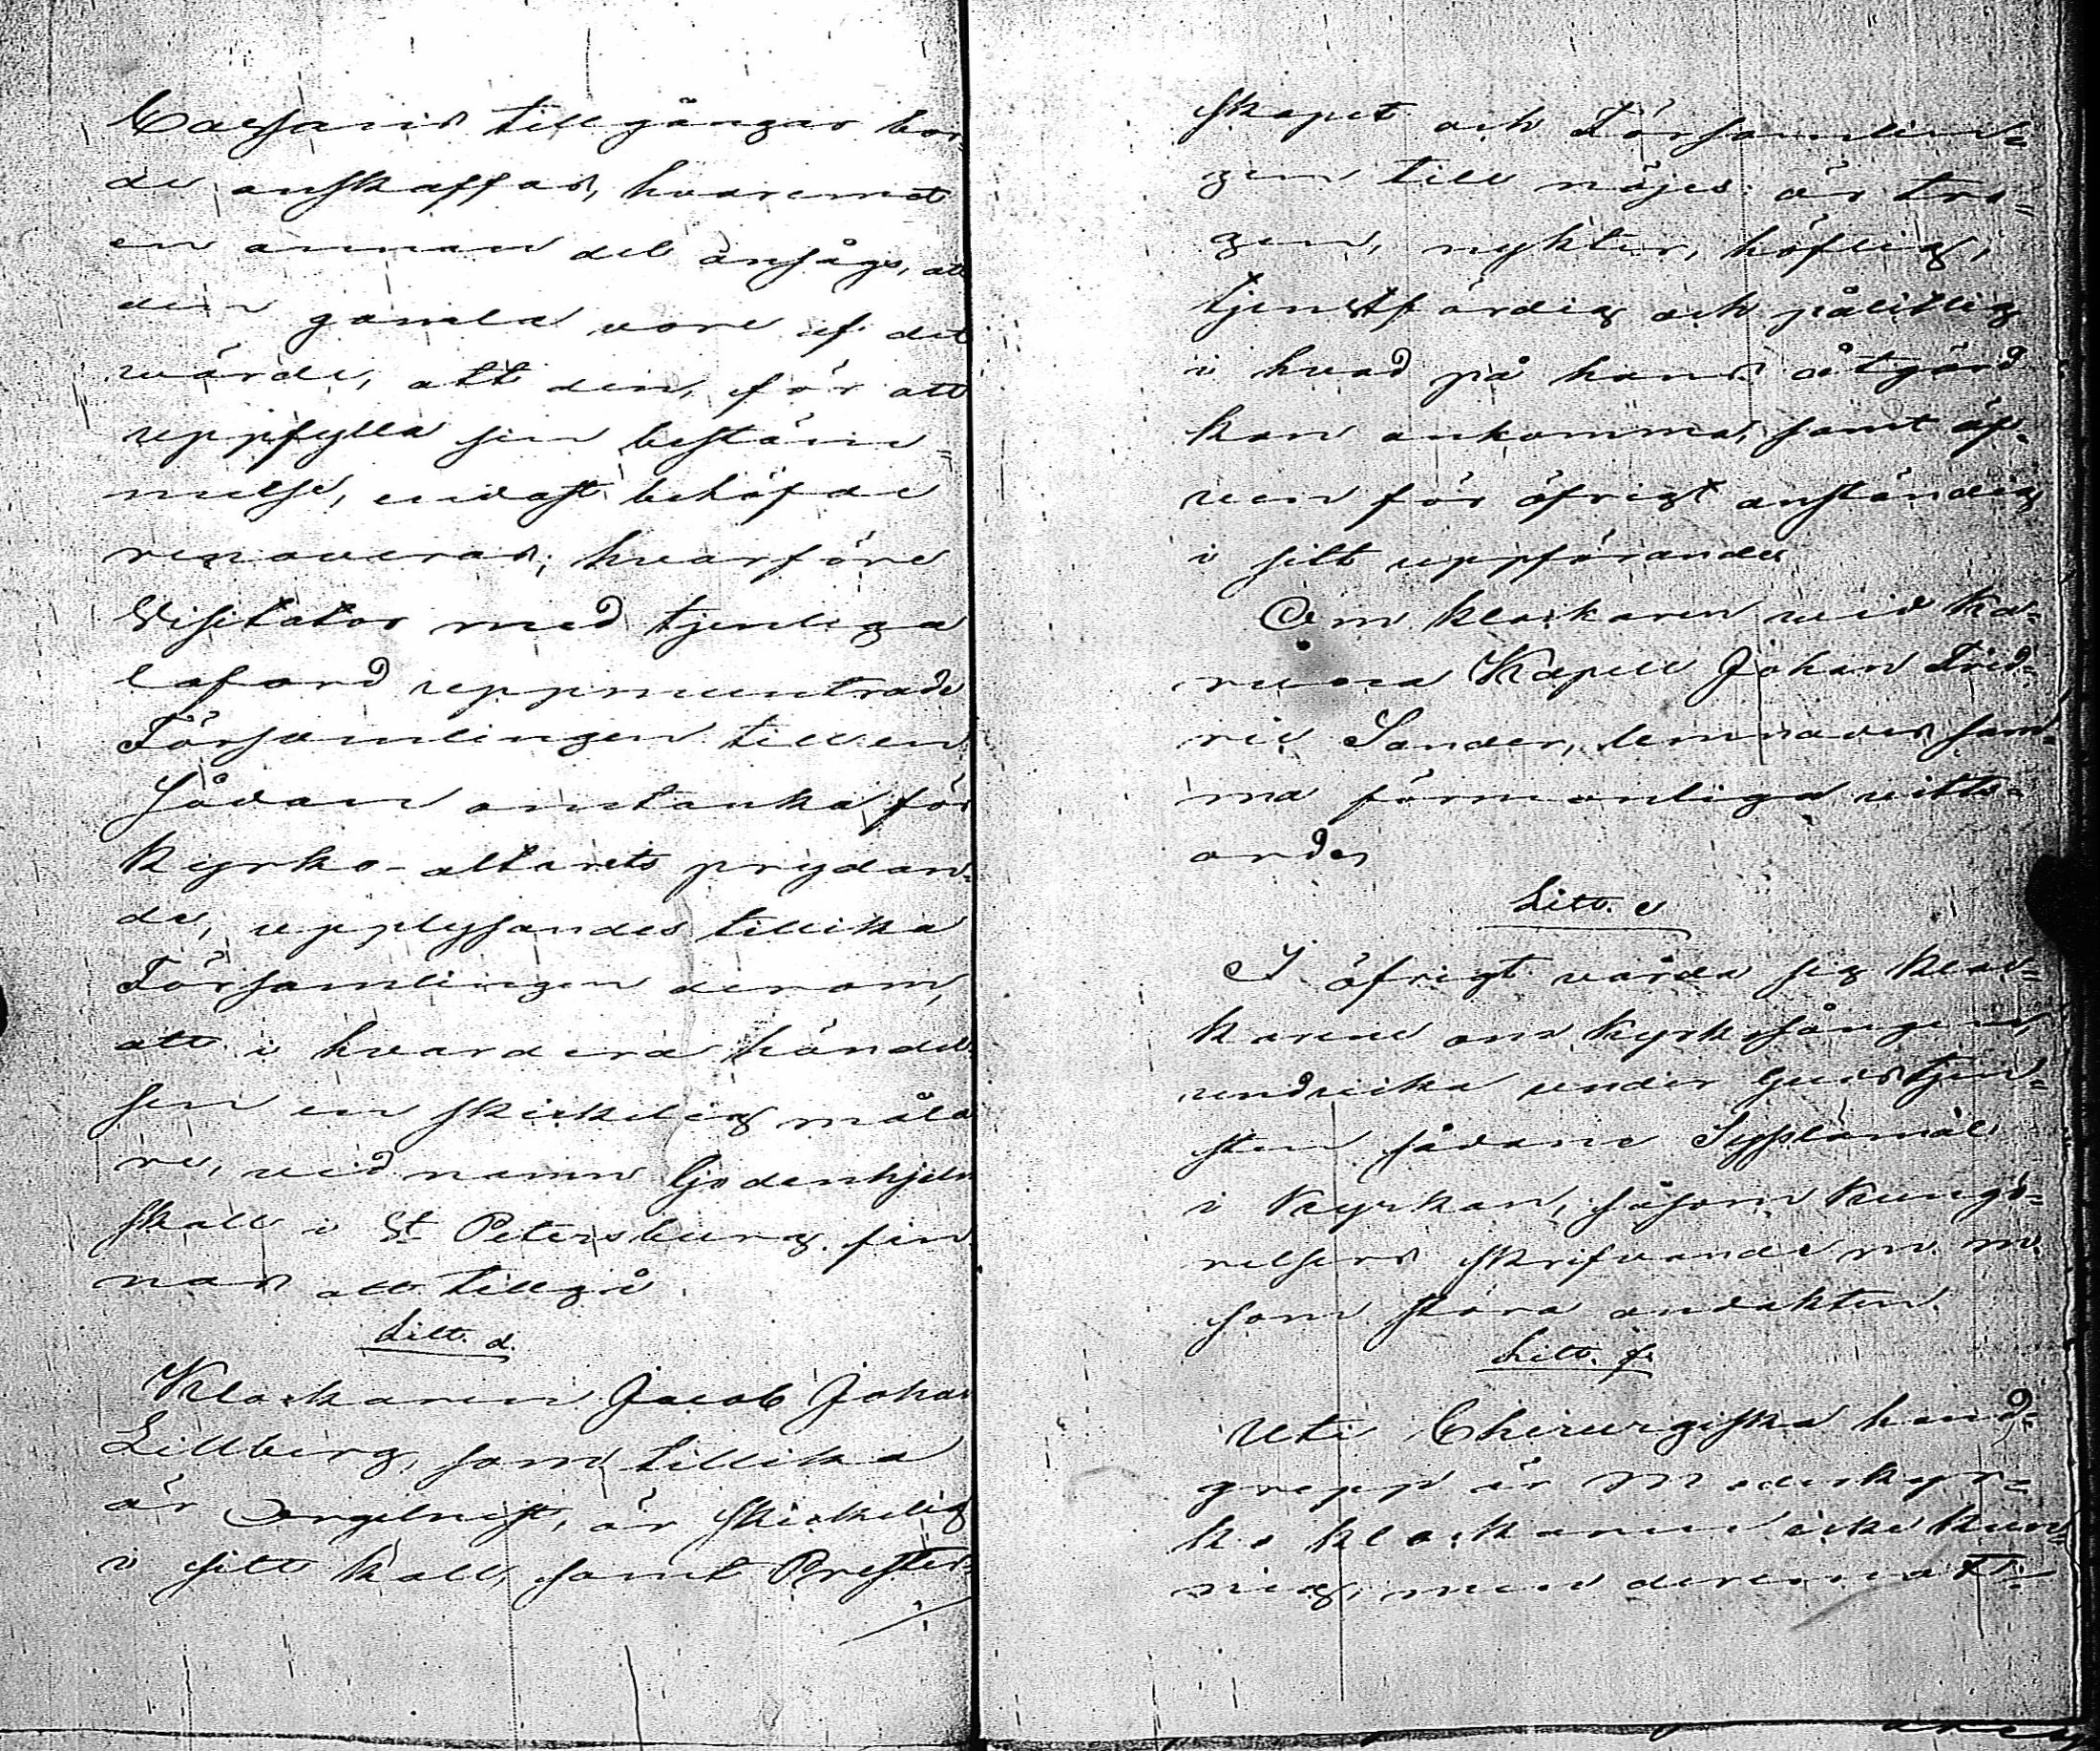 Cassans tillgångar bor-
de anskaffas, hvaremot
en annan del ansågs, att
den gamla vore af det
wärde, att den, för att
uppfylla sin bestäm-
melse, endast behöfde
renoveras; hvarföre
Visitator med tjenliga
loford uppmuntrade
Församlingen till en
sådan omtanka för
Kyrko-altarets prydan-
de, upplysandes tillika
Församlingen derom,
att i hvardera händel-
sen en skickelig måla
re, vid namn Godenhjelm
skall i St Petersburg fin
nas att tillgå
Litt. d.
Klockaren Jacob Johan
Lillberg, som tillika
är Orgelnist, är skickelig
i sitt kall, samt Prester-
skapet och Församlin-
gen till nöjes: är tro-
gen, nykter, höflig,
tjenstfärdig och pålitlig
i hvad på hans åtgärd
kan ankomma, samt äf-
ven för öfrigt anständig
i sitt uppförande
Om klockaren vid Ka-
Kapell Johan Fred-
ric Sander, lemnades sam-
ma förmonliga vitts-
ord.
Litt. e
I öfrigt vårda sig kloc-
karene om kyrkosången och
undvika under Gudstjen-
sten sådane Sysslomål
i Kyrkan, såsom kungö-
relsers skrifvande m. m.
som störa andakten.
Litt. f.
Uti Chirurgiska hand-
grepp är Moderkyr-
ko klockaren icke kun-
nig, men deremot